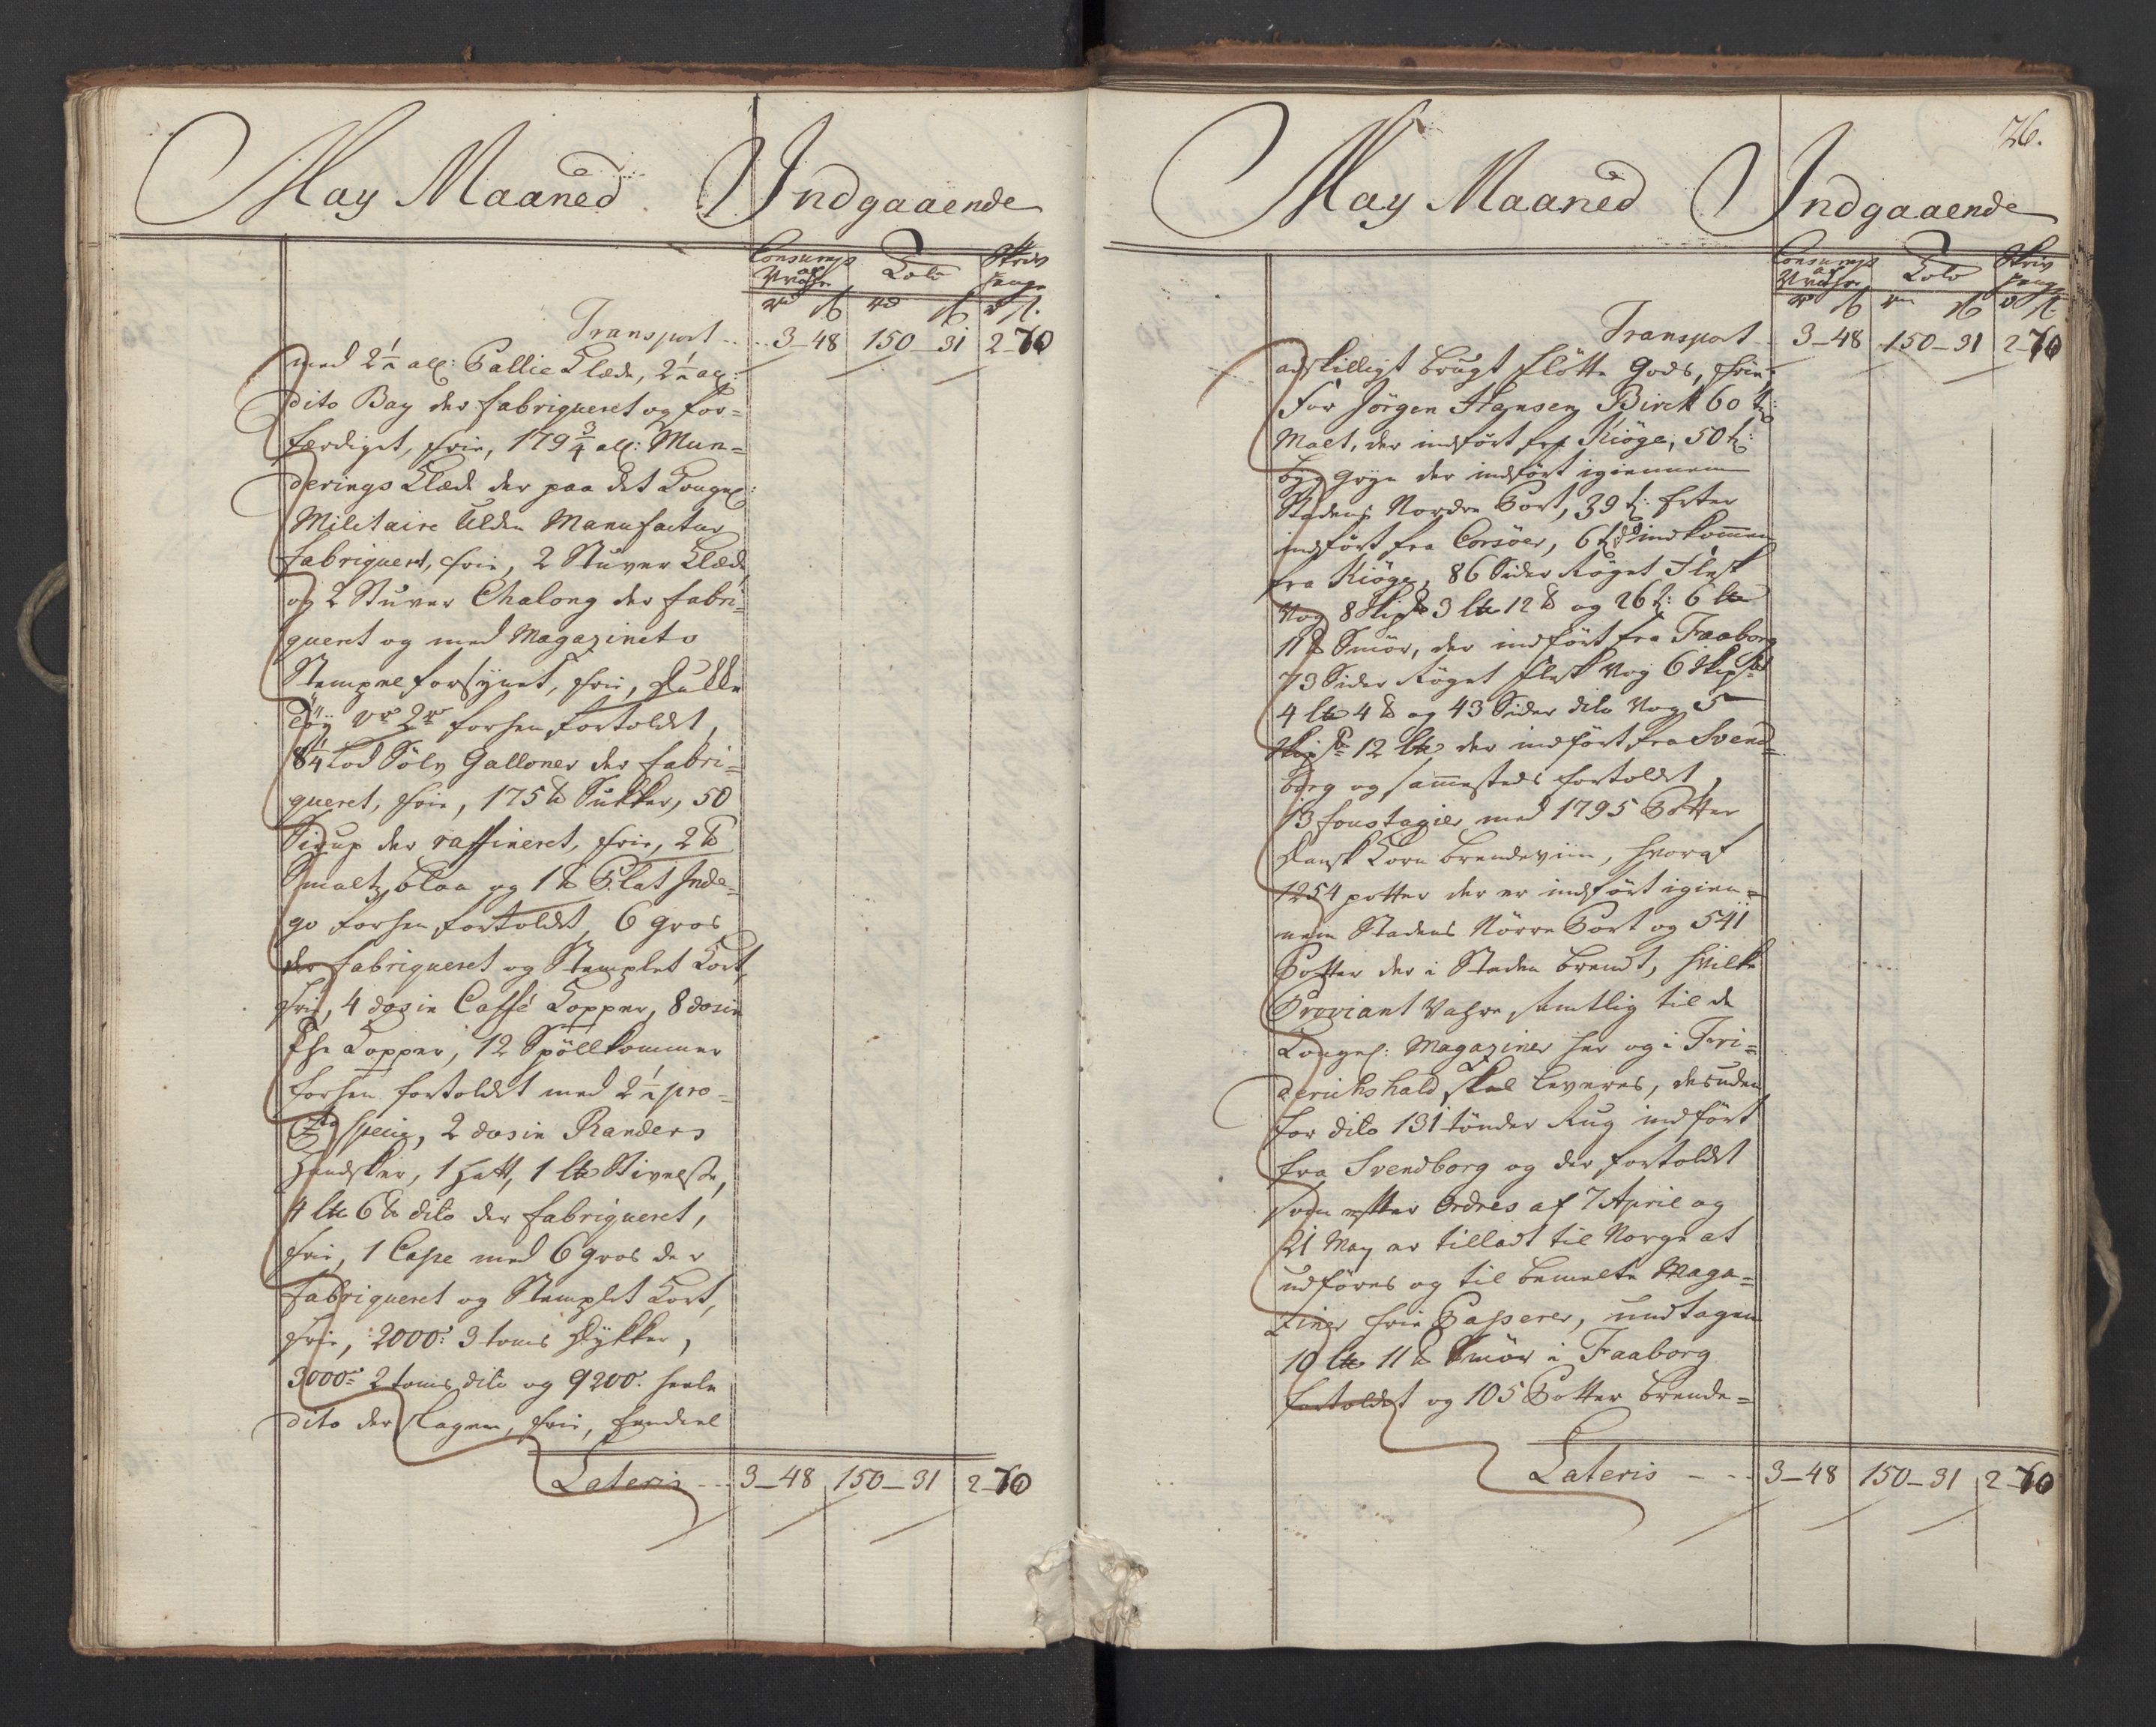 May Maaned Indgaaende
Consumps
af Vrahr Told Skriv
penge
rd ß rd ß rd ß.
Transport .. 3_48 150_31 2_70
med 2½ all: Pallie Klæde, 2½ al:
dito Bay der fabriqueret og for=
færdiget, frie, 179¾ all: Mun=
derings Klæde der paa det Kongel:
Militaire Ulden Manufactur
fabriqueret, frie, 2 Stuver Klæde
og 2 Stuver Chalong der fabri=
queret og med Magazinets
Stempel forsynet, frie, Dukke
Töÿ v 2 rd forhen fortoldet,
8¼ Lod Sölv Galloner der fabri=
queret, frie, 175 lb Sukker, 50
Sirup der raffineret, frie, 2 lb
Smaltz blaa og 1 lb Plat Inde=
go forhen fortoldet, 6 gros
der fabriqueret og Stemplet Kort,
frie, 4 dosin Caffé Kopper, 8 dosin
The Kopper, 12 Spöllkommer
forhen fortoldet med 2½ pro=
Cto Specie, 2 dosin Randers
Handsker, 1 Hatt, 1 Lb Stivelse,
4 Lb 6 lb dito der fabriqueret,
frie, 1 Casse med 6 gros der
fabriqueret og Stemplet Kort,
frie, 2000: 3 toms Dykker,
3000: 2 toms dito og 9200: heele
dito der slagen, frie, endeel
Lateris --- 3_48 150_31 2_70
26.
May Maaned Indgaaende
Consumps
af Vrahr Told Skriv
penge
rd ß rd ß rd ß.
Transport .. 3_48 150_31 2_70
adskilligt brugt Flötte Gods, frie.
For Jörgen Hansen Birch 60 t:
Malt, der indfört fra Kiöge, 50 t:
byg gryn der indfört igiennem
Stadens Nordre Port, 39 t: Erter
indfört fra Corsöer, 6 t: do indkommen
fra Kiöge, 86 Sider Röget Flesk
Vog 8 Skip lb 3 Lb 12 lb og 26 t: 6 Lb
11 lb Smör, der indfört fra Faaborg
73 Sider Röget Flesk Vog 6 Skip lb
4 Lb 4 lb og 43 Sider dito Vog 5
Skip lb 12 Lb, der indfört fra Svend=
borg og sammesteds fortoldet,
13 foustagier med 1795 Potter
Dansk Korn brendeviin, hvoraf
1254 potter der er indfört igien=
nem Stadens Nörre Port og 541
Potter der i Staden brendt, hvilke
Proviant Vahre samtlig til de
Kongel: Magaziner her og i Fri=
derichshald skal leveres, desuden
for dito 131 tönder Rug indfört
fra Svendborg og der fortoldet
som efter Ordres af 7 April og
21 May er tilladt til Norge at
udföres og til bemelte Maga=
ziner frie Passerer, undtagen
10 Lb 11 lb Smör i Faaborg
fortoldet og 105 Potter brende=
Lateris - - - 3_48 150_31 2_70